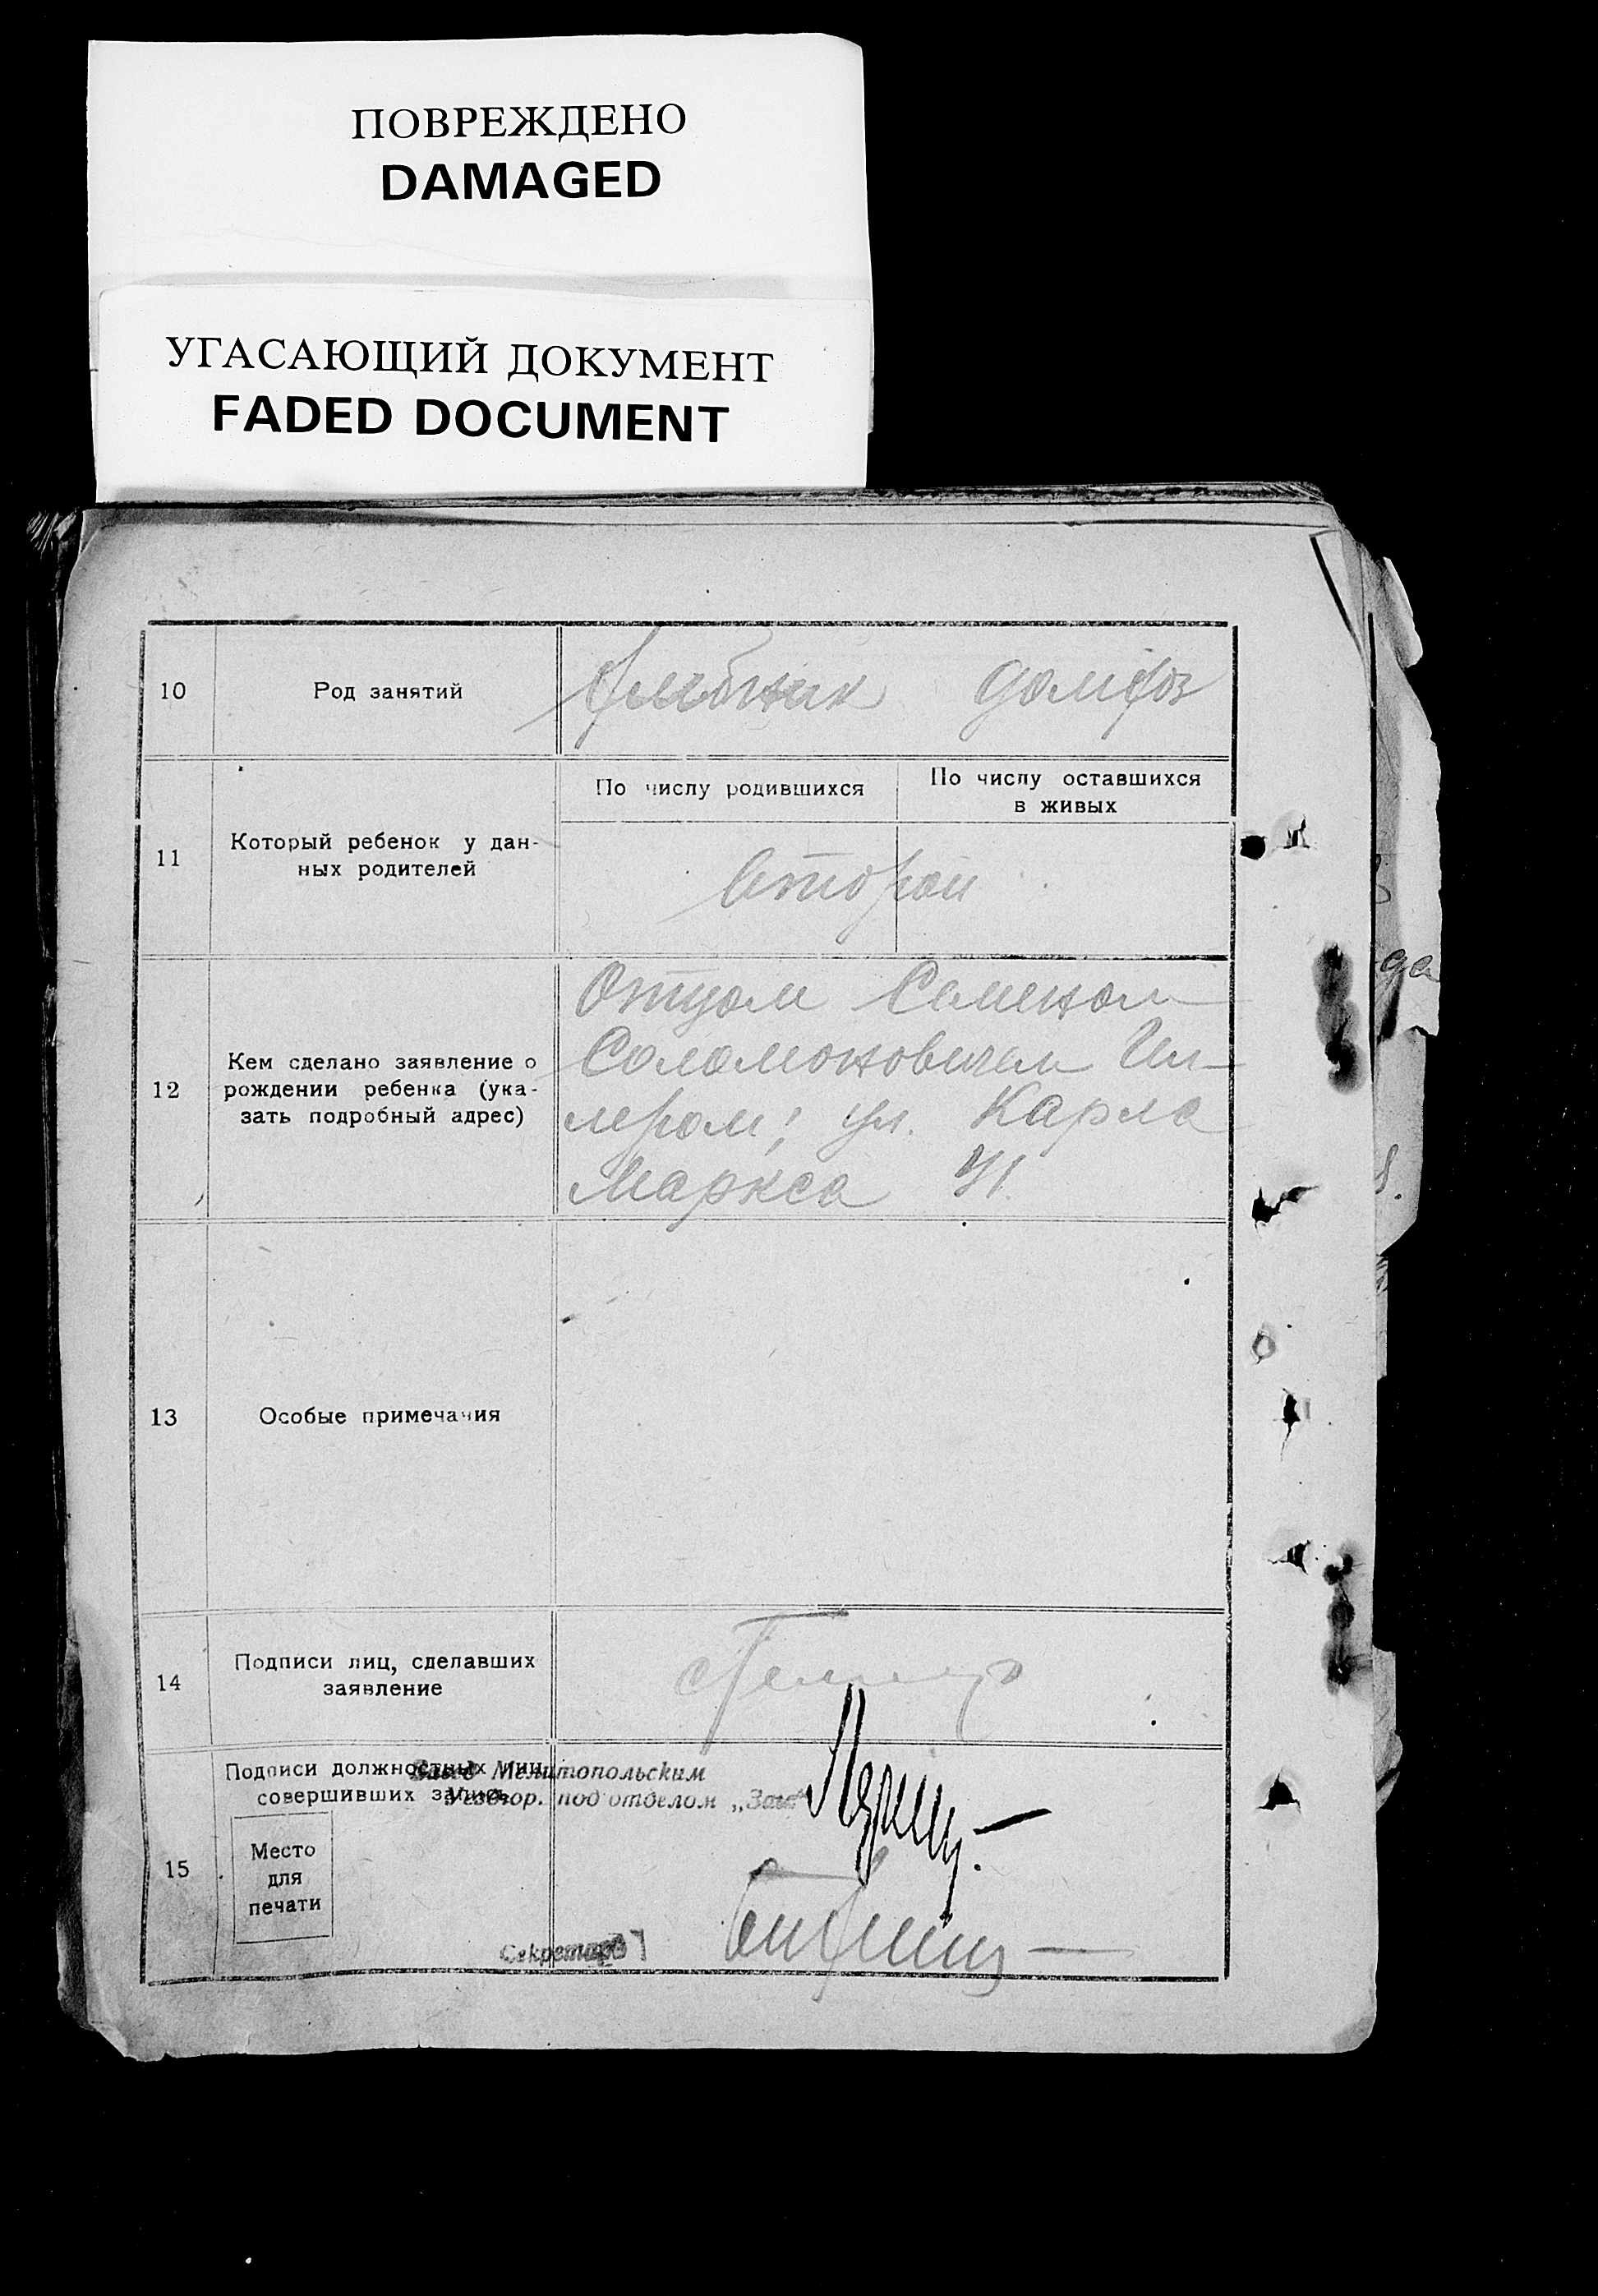 ПОВРЕЖДЕНО
DAMAGED
УГАСАЮЩИЙ ДОКУМЕНТ
FADED DOCUMENT
10
Род занятий
11
Который ребенок у дан-
ных родителей
По числу родившихся
По числу оставшихся
в живых
Второй
12
Кем сделано заявление о
рождении ребенка (ука-
зать подробный адрес)
Отцом Семеном
Соломоновичем
лером; ул. Карла
Маркса
13
Особые примечания
14
Подписи лиц, сделавших
заявление
15
Подписи должностных лиц,
совершивших запись
Завед Мелитопольским
под отделом „Загс“
Место
для
печати
Секретарь